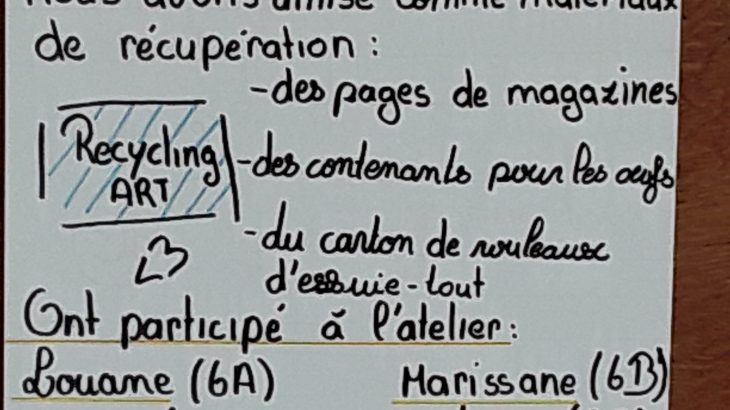 Nous avons utilisé comme matériaux
de récupération :
- des pages de magazines
Recycling
ART
- des contenants pour les œufs
- du carton de rouleaux
d'essuie-tout
Ont participé à l'atelier :
Louane (6A) Marissane (6B)